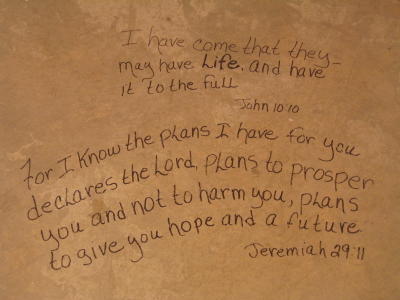 I have come that they
may have Life, and have
it to the full
John 10:10
For I know the plans I have for you
declares the Lord, plans to prosper
you and not to harm you, plans
to give you hope and a future
Jeremiah 29:11